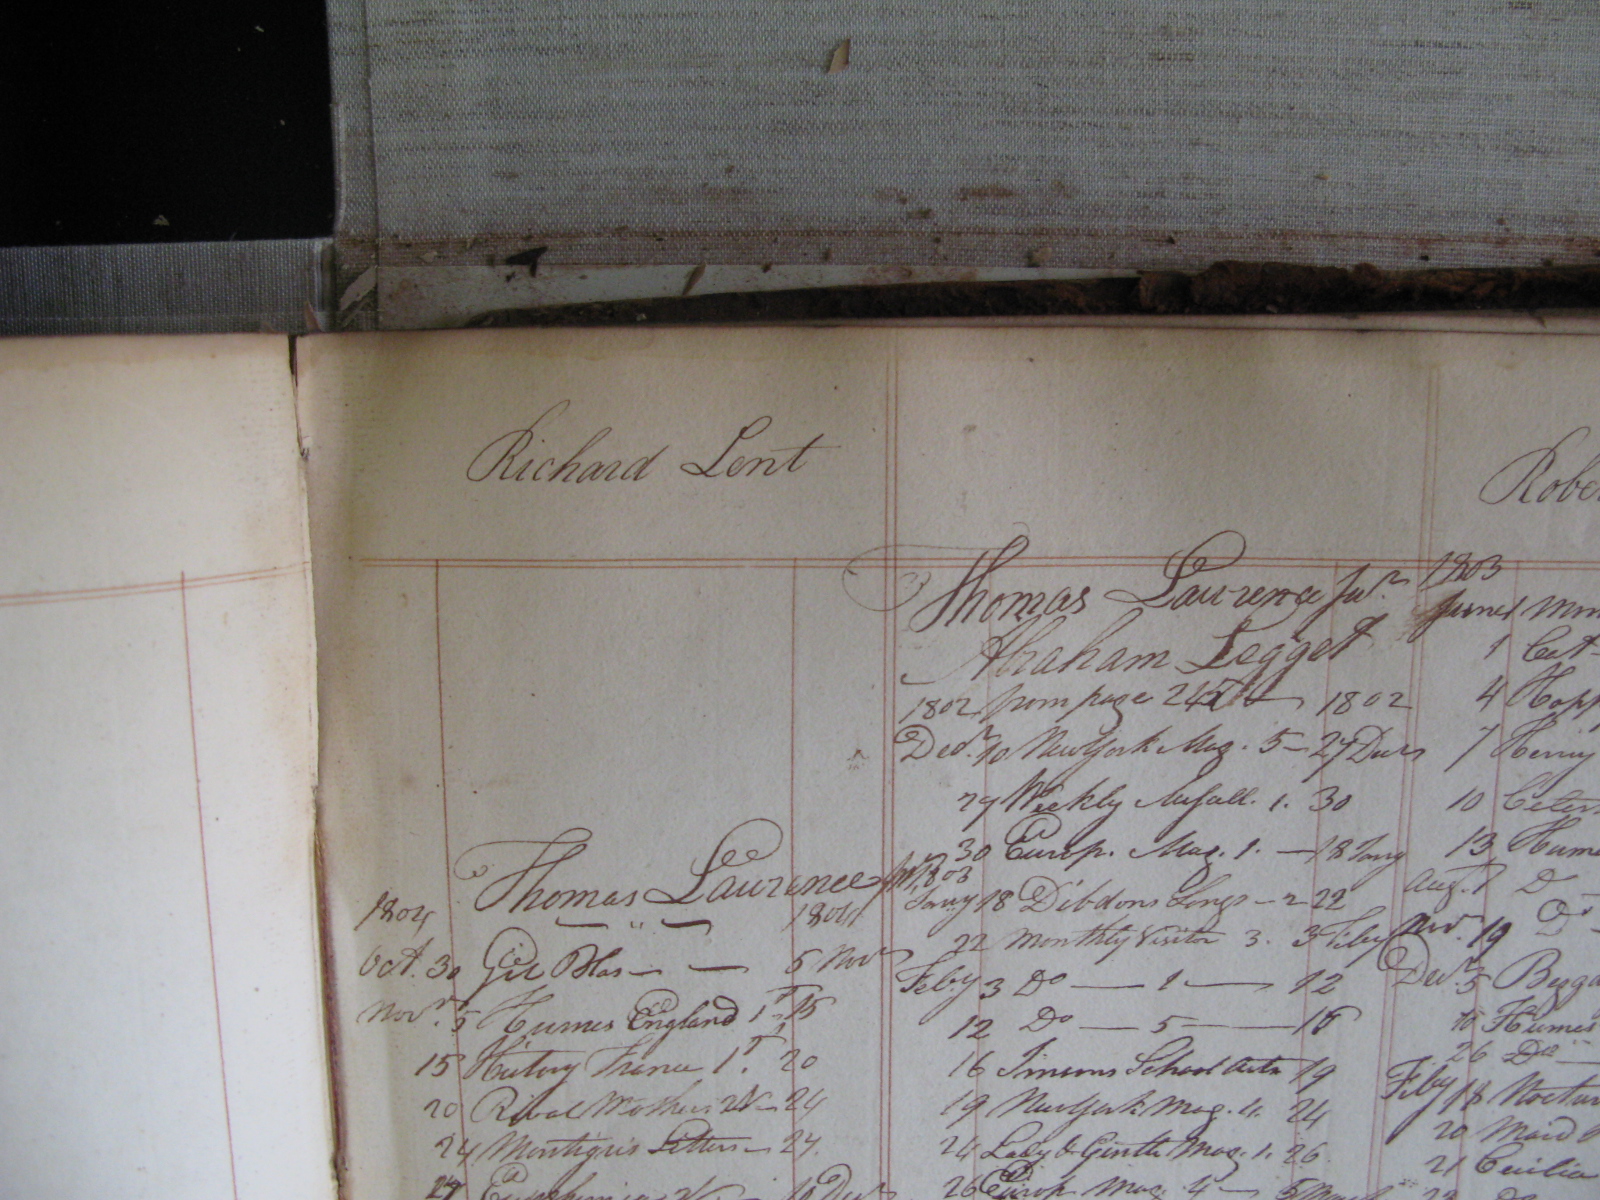 Richard Lent
Thomas Laurence Jur.
1804 1804
Oct. 30 Gil Blas — — 5 Novr
Novr. 5 Humes England 1 T 15
15 History France 1 T. 20
20 Rival Mothers 2 V — 24
24 Montigu's Letters — 24.
27
Thomas Laurence Junr.
Abraham Legget
1802 from page 245 — 1802
Decr. 10 New York Mag. 5 — 27 Decr
27 Weekly Musall. 1. 30
30 Europ. Mag. 1. — 18 Jany
1803
Jany 18 Dibdons Songs — 2 22
22 Monthly Visitor 3. 3 Feby
Feby 3 Do — 1 — 12
12 Do — 5 — 16
16 Simsons School Acts 19
19 New York Mag. 4. 24
24 Lady & Gentle Mag. 1. 26.
26 Mag. 4 — 5 March
Robe
1803
June 1
1 Cat
4 Hopp
7 Henry
10
13 Hume
Augt. 7 D
Novr. 19 Do
Decr. 5
15 Humes
26 Do
Feby 18 Noctur
20 Maid
21 Cecilia